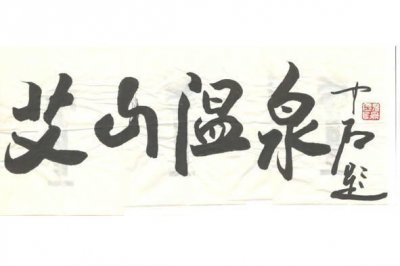 艾山温泉
中石题